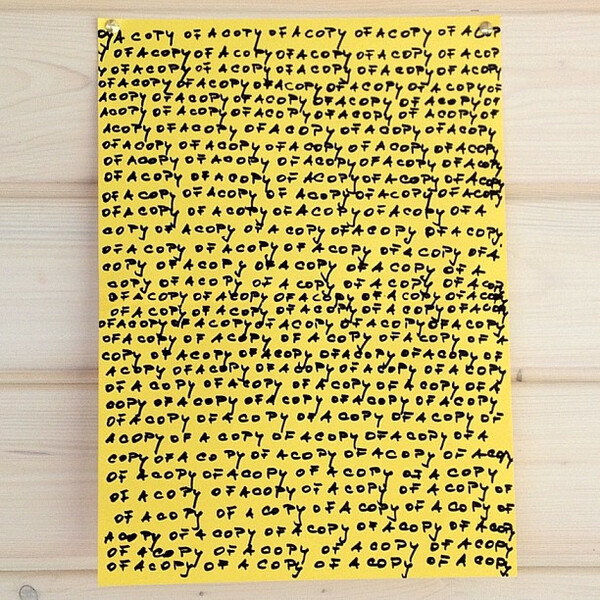 A COPY OF A COPY OF A COPY OF A COPY OF A COP
OF A COPY OF A COPY OF A COPY OF A COPY OF A COPY
OF A COPY OF A COPY OF A COPY OF A COPY OF A COPY
OF A COPY OF A COPY OF A COPY OF A COPY OF A COPY OF
A COPY OF A COPY OF A COPY OF A COPY OF A COPY OF
A COPY OF A COPY OF A COPY OF A COPY OF A COPY OF
A COPY OF A COPY OF A COPY OF A COPY OF A COPY
OF A COPY OF A COPY OF A COPY OF A COPY OF A COPY
OF A COPY OF A COPY OF A COPY OF A COPY OF A COPY
OF A COPY OF A COPY OF A COPY OF A COPY OF A COPY
OF A COPY OF A COPY OF A COPY OF A COPY OF A COPY
OF A COPY OF A COPY OF A COPY OF A COPY OF A
COPY OF A COPY OF A COPY OF A COPY OF A COPY
OF A COPY OF A COPY OF A COPY OF A COPY OF A
COPY OF A COPY OF A COPY OF A COPY OF A
COPY OF A COPY OF A COPY OF A COPY OF A COPY
OF A COPY OF A COPY OF A COPY OF A COPY OF A COPY
OF A COPY OF A COPY OF A COPY OF A COPY OF A COPY
OF A COPY OF A COPY OF A COPY OF A COPY OF A COPY
OF A COPY OF A COPY OF A COPY OF A COPY OF A
COPY OF A COPY OF A COPY OF A COPY OF A COPY
OF A COPY OF A COPY OF A COPY OF A COPY OF A COPY
OF A COPY OF A COPY OF A COPY OF A COPY OF A
COPY OF A COPY OF A COPY OF A COPY OF A COPY
OF A COPY OF A COPY OF A COPY OF A COPY OF
A COPY OF A COPY OF A COPY OF A COPY OF A
COPY OF A COPY OF A COPY OF A COPY OF A COPY
OF A COPY OF A COPY OF A COPY OF A COPY
OF A COPY OF A COPY OF A COPY OF A COPY OF
OF A COPY OF A COPY OF A COPY OF A COPY OF
A COPY OF A COPY OF A COPY OF A COPY OF A COPY
OF A COPY OF A COPY OF A COPY OF A COPY
OF A COPY OF A COPY OF A COPY OF A COPY